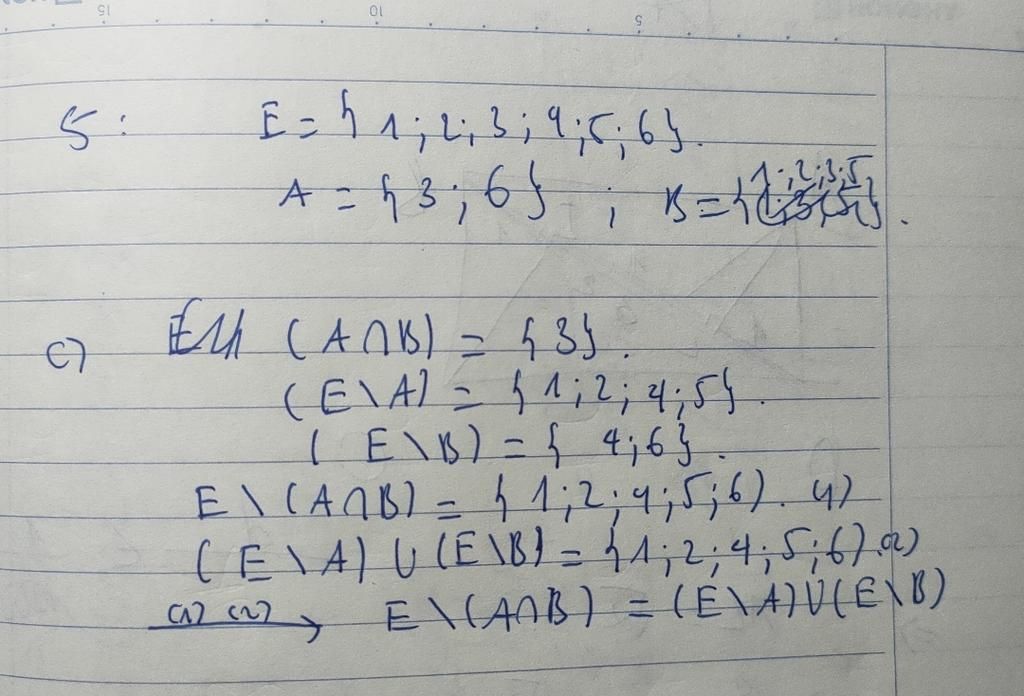 15 10 5
5: E = { 1; 2; 3; 4; 5; 6}.
A = { 3; 6} ; B = {1; 2; 3; 5}.
c) (A∩B) = {3}.
(E\A) = { 1; 2; 4; 5}.
( E\B) = { 4; 6}.
E \ (A∩B) = { 1; 2; 4; 5; 6}. (1)
( E\A) ∪ (E\B) = {1; 2; 4; 5; 6}. (2)
(1) (2) → E \ (A∩B) = (E\A) ∪ (E\B)